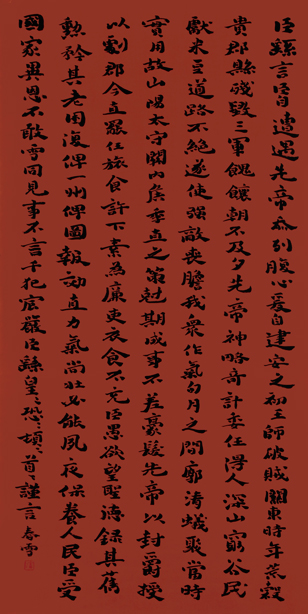 臣繇言臣自遭遇先帝忝列腹心爰自建安之初王師破賊關東時年荒穀
貴郡縣殘毀三軍餽饟朝不及夕先帝神略奇計委任得人深山窮谷民
獻米豆道路不絕遂使強敵喪膽我眾作氣旬月之間廓清蟻聚當時
實用故山陽太守關內侯季直之策剋期成事不差豪髮先帝以封爵授
以劇郡今直罷任旅食許下素為廉吏衣食不充臣愚欲望聖德錄其舊
勳矜其老困復俾一州俾圖報効直力氣尚壯必能夙夜保養人民臣受
國家異恩不敢雷同見事不言干犯宸嚴臣繇皇〻恐〻頓〻首〻謹言 春雪